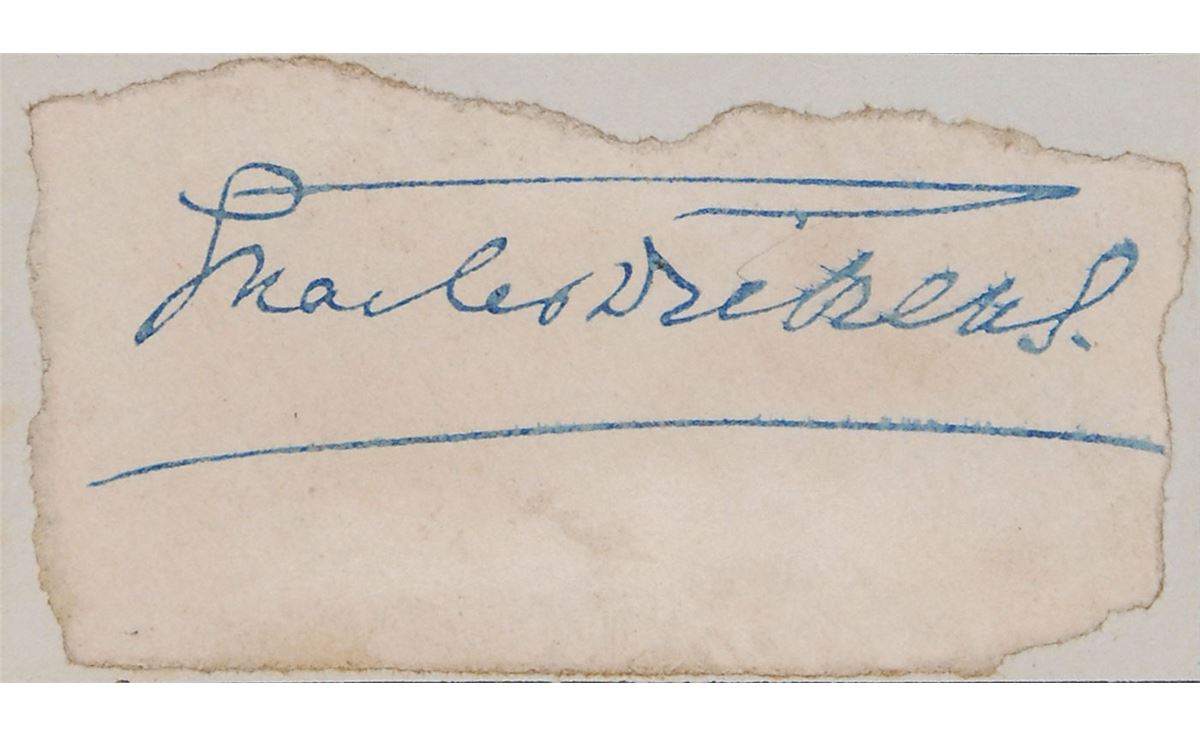 Charles Dickens.